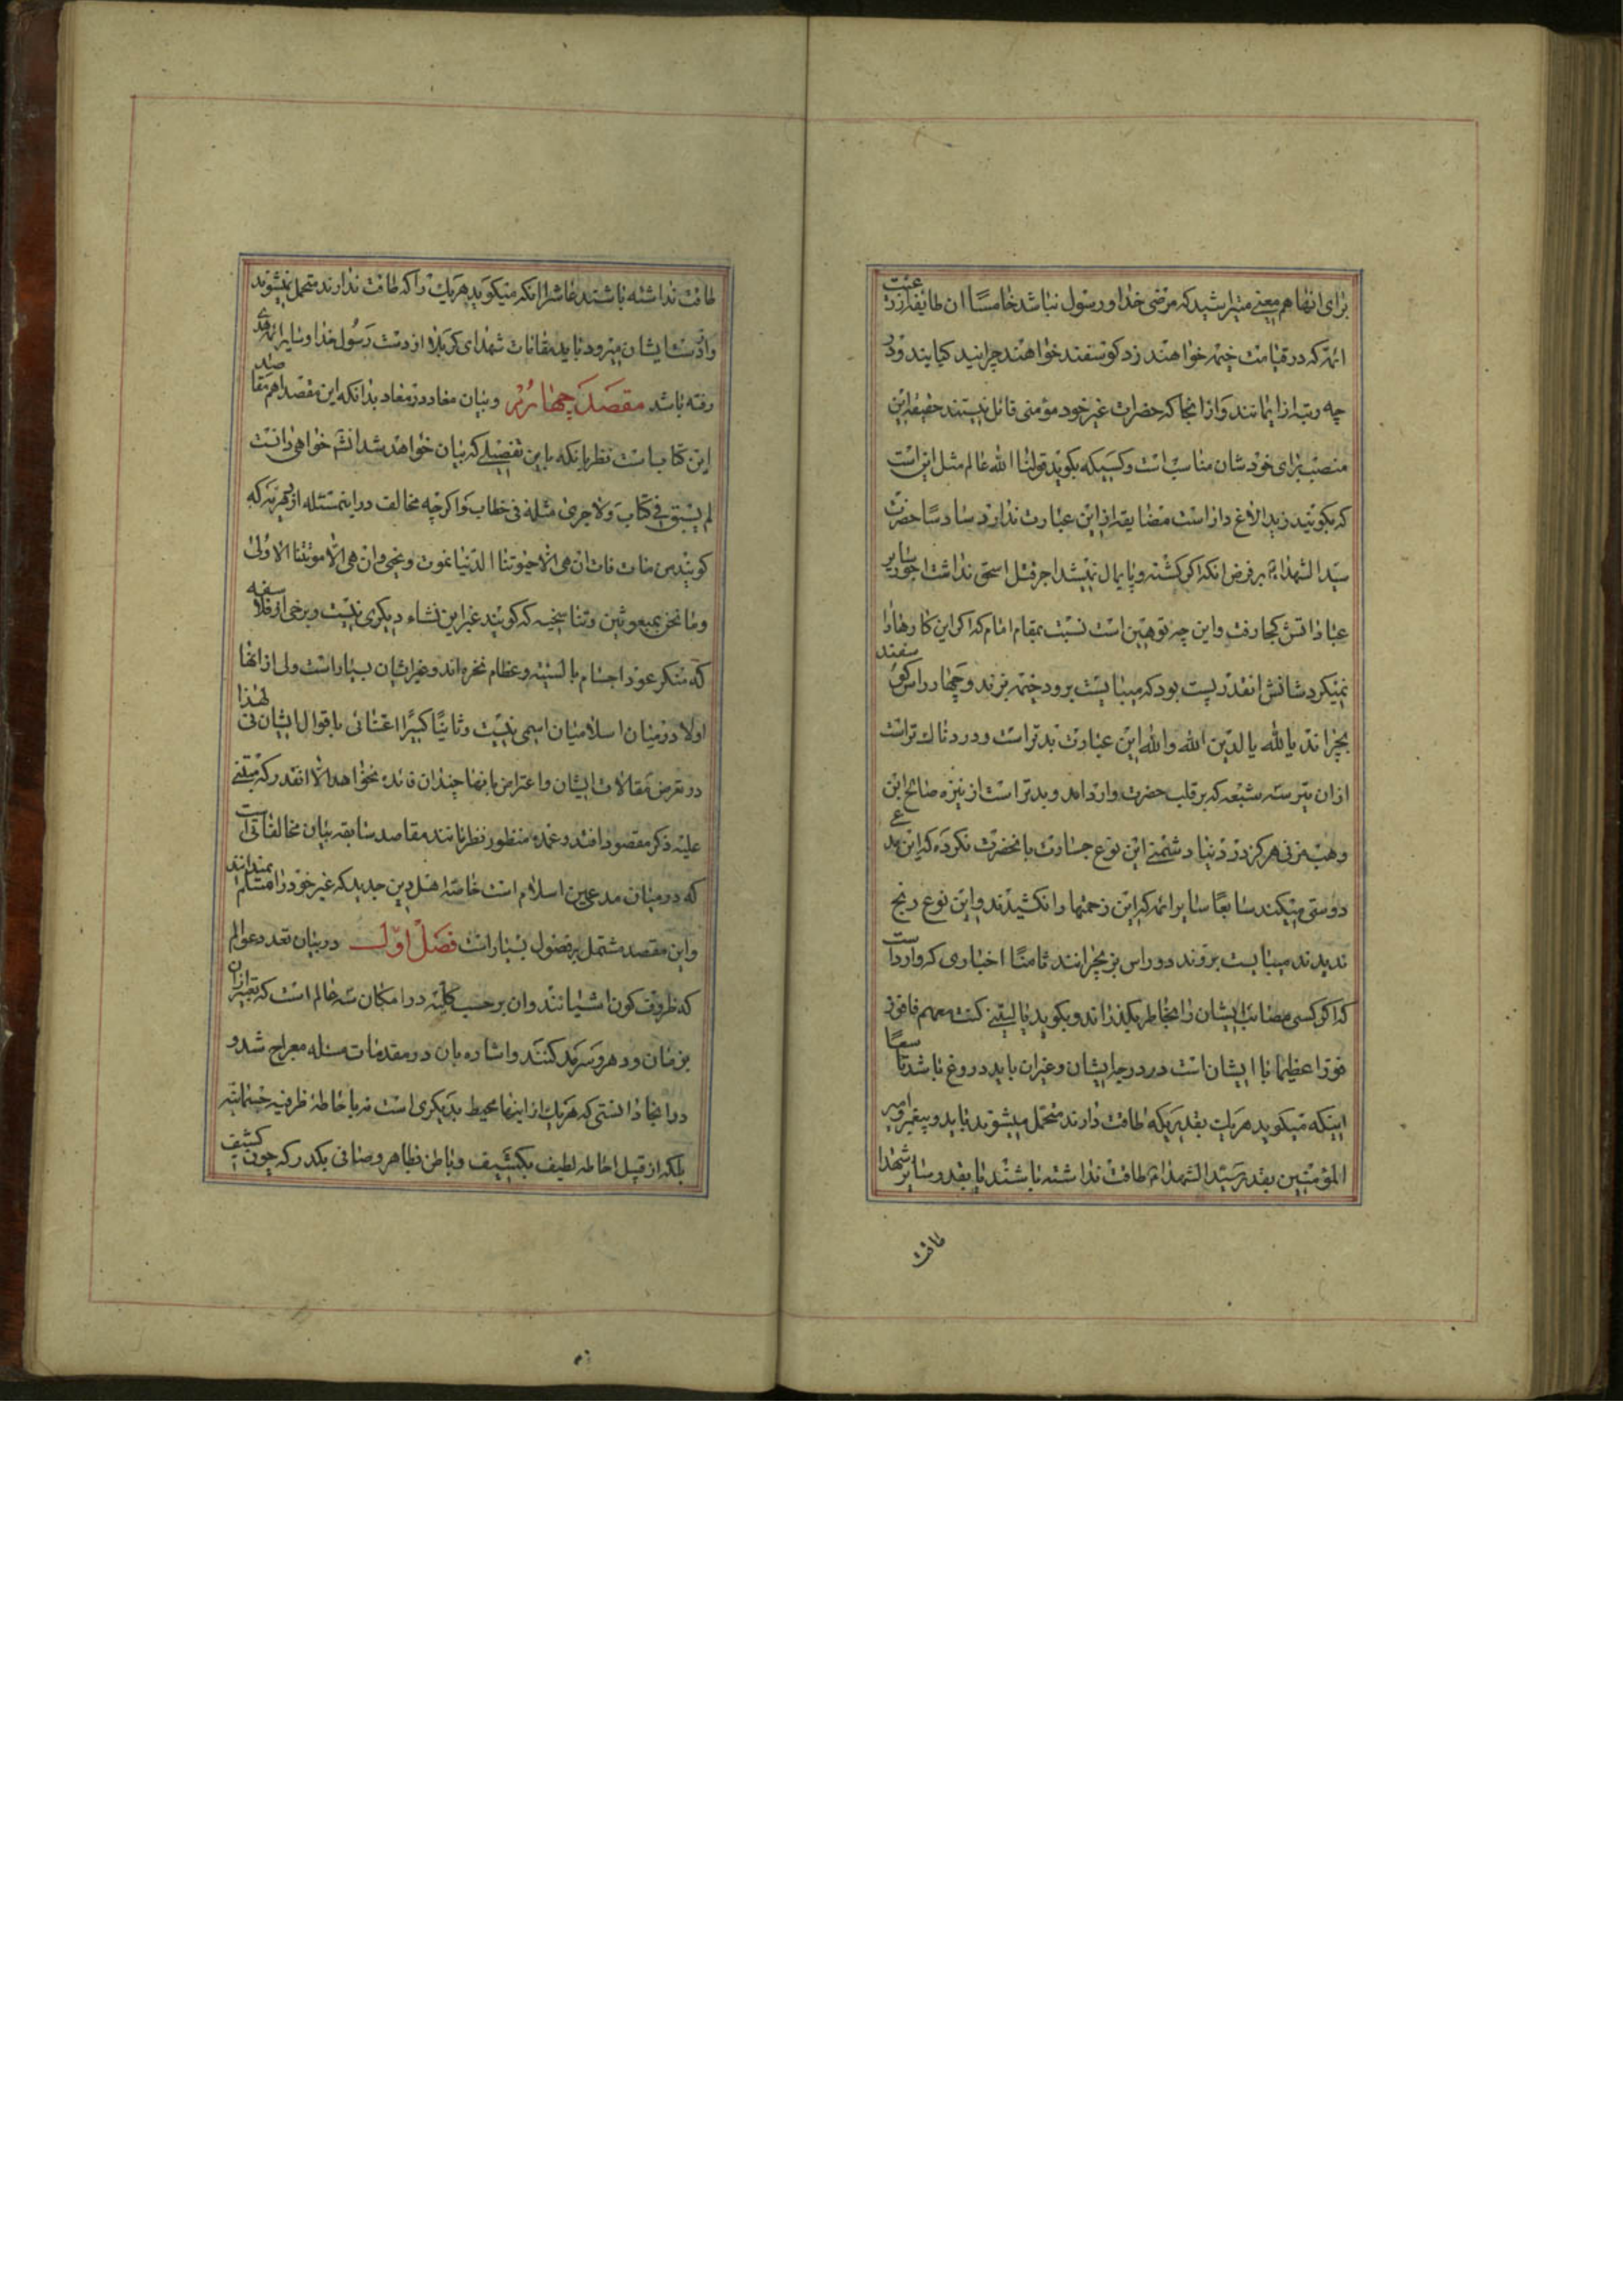 برای انها هم معنی میتراشید که مرضی خدا و رسول نباشد خامسا ان طایفه از رعیت
ائمه که در قیامت خیمه خواهند زد کوسفند خواهند چرانید کیایند و در
چه رتبه از ایمانند و از انجا که حضرات غیر خود مؤمنی قائل نیستند حقیقة این
منصب برای خودشان مناسب است و کسیکه بکوید قولنا الله عالم مثل این است
که بکوئید زید الاغ دار است مضایقه از این عبارت ندارد سادسا حضرت
سید الشهداء بر فرض انکه اکر کشته و پایمال نمیشد اجر قتل اسحق نداشت اجور سایر
عباداتش کجا رفت و این چه توهین است نسبت بمقام امام که اکر این کارها را
نمیکرد شانش انقدر پست بود که میبایست برود خیمه بزند و چهار راس کوسفند
بچراند یا لله یا لدین الله والله این عبارت بدتر است و دردناک تر است
از ان تیر سه شعبه که بر قلب حضرت وارد امد و بدتر است از نیزه صالح ابن
وهب مزنی هرکز در دنیا دشمنی این نوع جسارت بانحضرت نکرده که این مدعی
دوستی میکند سابعا سایر ائمه که این زحمتها را نکشیدند و این نوع رنج
ندیدند میبایست بروند دو راس بز بچرانند ثامنا اخباری که وارد است
که اکر کسی مصائب ایشان را بخاطر بکذراند و بکوید یا لیتنی کنت معهم فافوز
فوزا عظیما با ایشان است در درجه ایشان و غیران باید دروغ باشد تاسعا
اینکه میکوید هریک بقدریکه طاقت دارند متحمل میشوند باید پیغمبر و امیر
المؤمنین بقدر سید الشهداء طاقت نداشته باشند یا بقدر سایر شهدا
طاقت
طاقت نداشته باشند عاشرا انکه میکوید هریک را که طاقت ندارند متحمل نمیشوند
و از دست ایشان میرود باید مقامات شهدای کربلا از دست رسول خدا و سایر ائمه هدی
رفته باشد مقصد چهارم در بیان معاد بدانکه این مقصد اهم مقاصد
این کتابست نظر بانکه باین تفصیلی که بیان خواهد شد انشم خواهی دانست
لم یسبق فی کتاب ولا جری مثله فی خطاب و اکرچه مخالف در اینمسئله از دهریه که
کویند من مات فات ان هی الا حیوتنا الدنیا نموت و نحیی وان هی الا موتتنا الاولی
وما نحن بمبعوثین و تناسخیه که کویند غیر این نشاء دیکری نیست و برخی از فلاسفه
که منکر عود اجسام بالیه و عظام نخره اند و غیر ایشان بسیار است ولی از انها
اولا در میان اسلامیان اسمی نیست و ثانیا کبیرا اعتنائی باقوال ایشان نی لهذا
در تعرض مقالات ایشان و اعتراض بانها چندان فائده نخواهد الا انقدر که مبتنی
علیه ذکر مقصود افتد و عمده منظور نظر مانند مقاصد سابقه بیان مخالفاتی است
که در میان مدعین اسلام است خاصه اهل دین جدید که غیر خود را مسلم نمیدانند
و این مقصد مشتمل بر فصول بسیار است فصل اول در بیان تعدد عوالم
که ظروف کون اشیایند و ان بر حسب کلیه در امکان سه عالم است که تعبیر از ان
بزمان و دهر و سرمد کنند و اشاره بان در مقدمات مسئله معراج شد و
در انجا دانستی که هریک از اینها محیط بدیکری است نه باحاطه ظرفیه جسمانیه
بلکه از قبیل احاطه لطیف بکثیف و باطن بظاهر و صافی بکدر که چون کثیف